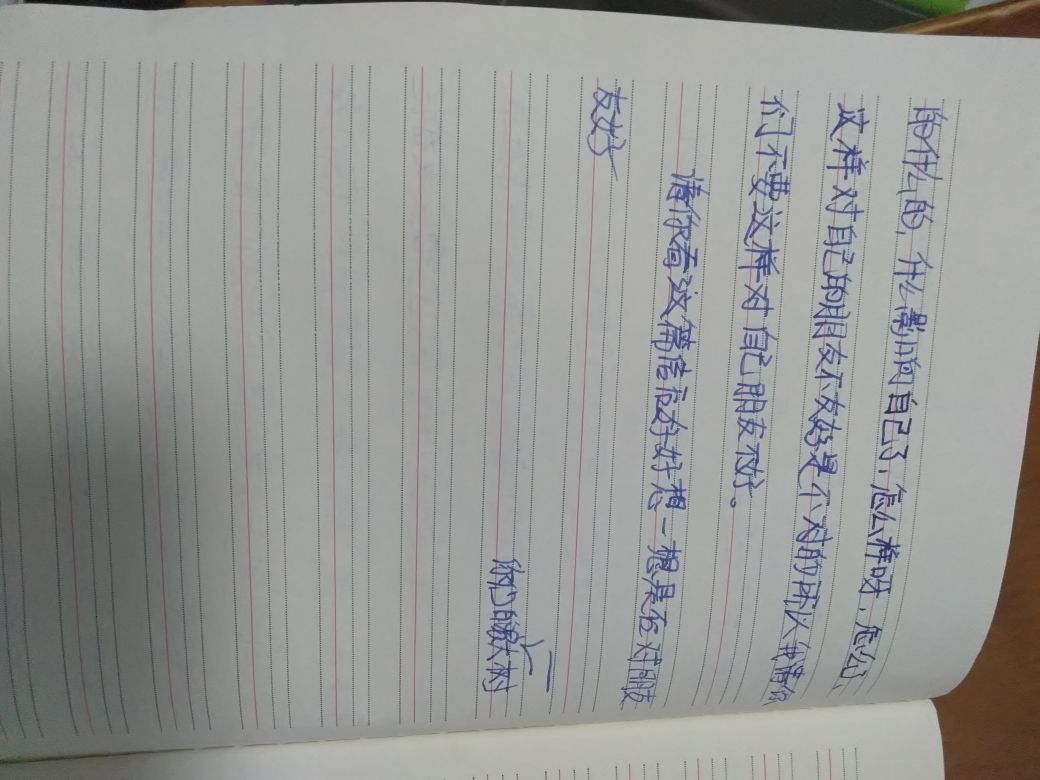 的什么的,什么影响自己了,怎么样呀,怎么,
这样对自己的朋友不友好是不对的所以我请你
们不要这样对自己朋友不好。
请你看这篇信后好好想一想是否对朋友
友好
你们的大树